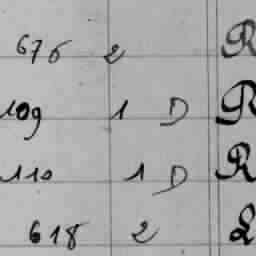 676 2 R
109 1 D R
110 1 D R
618 2 L